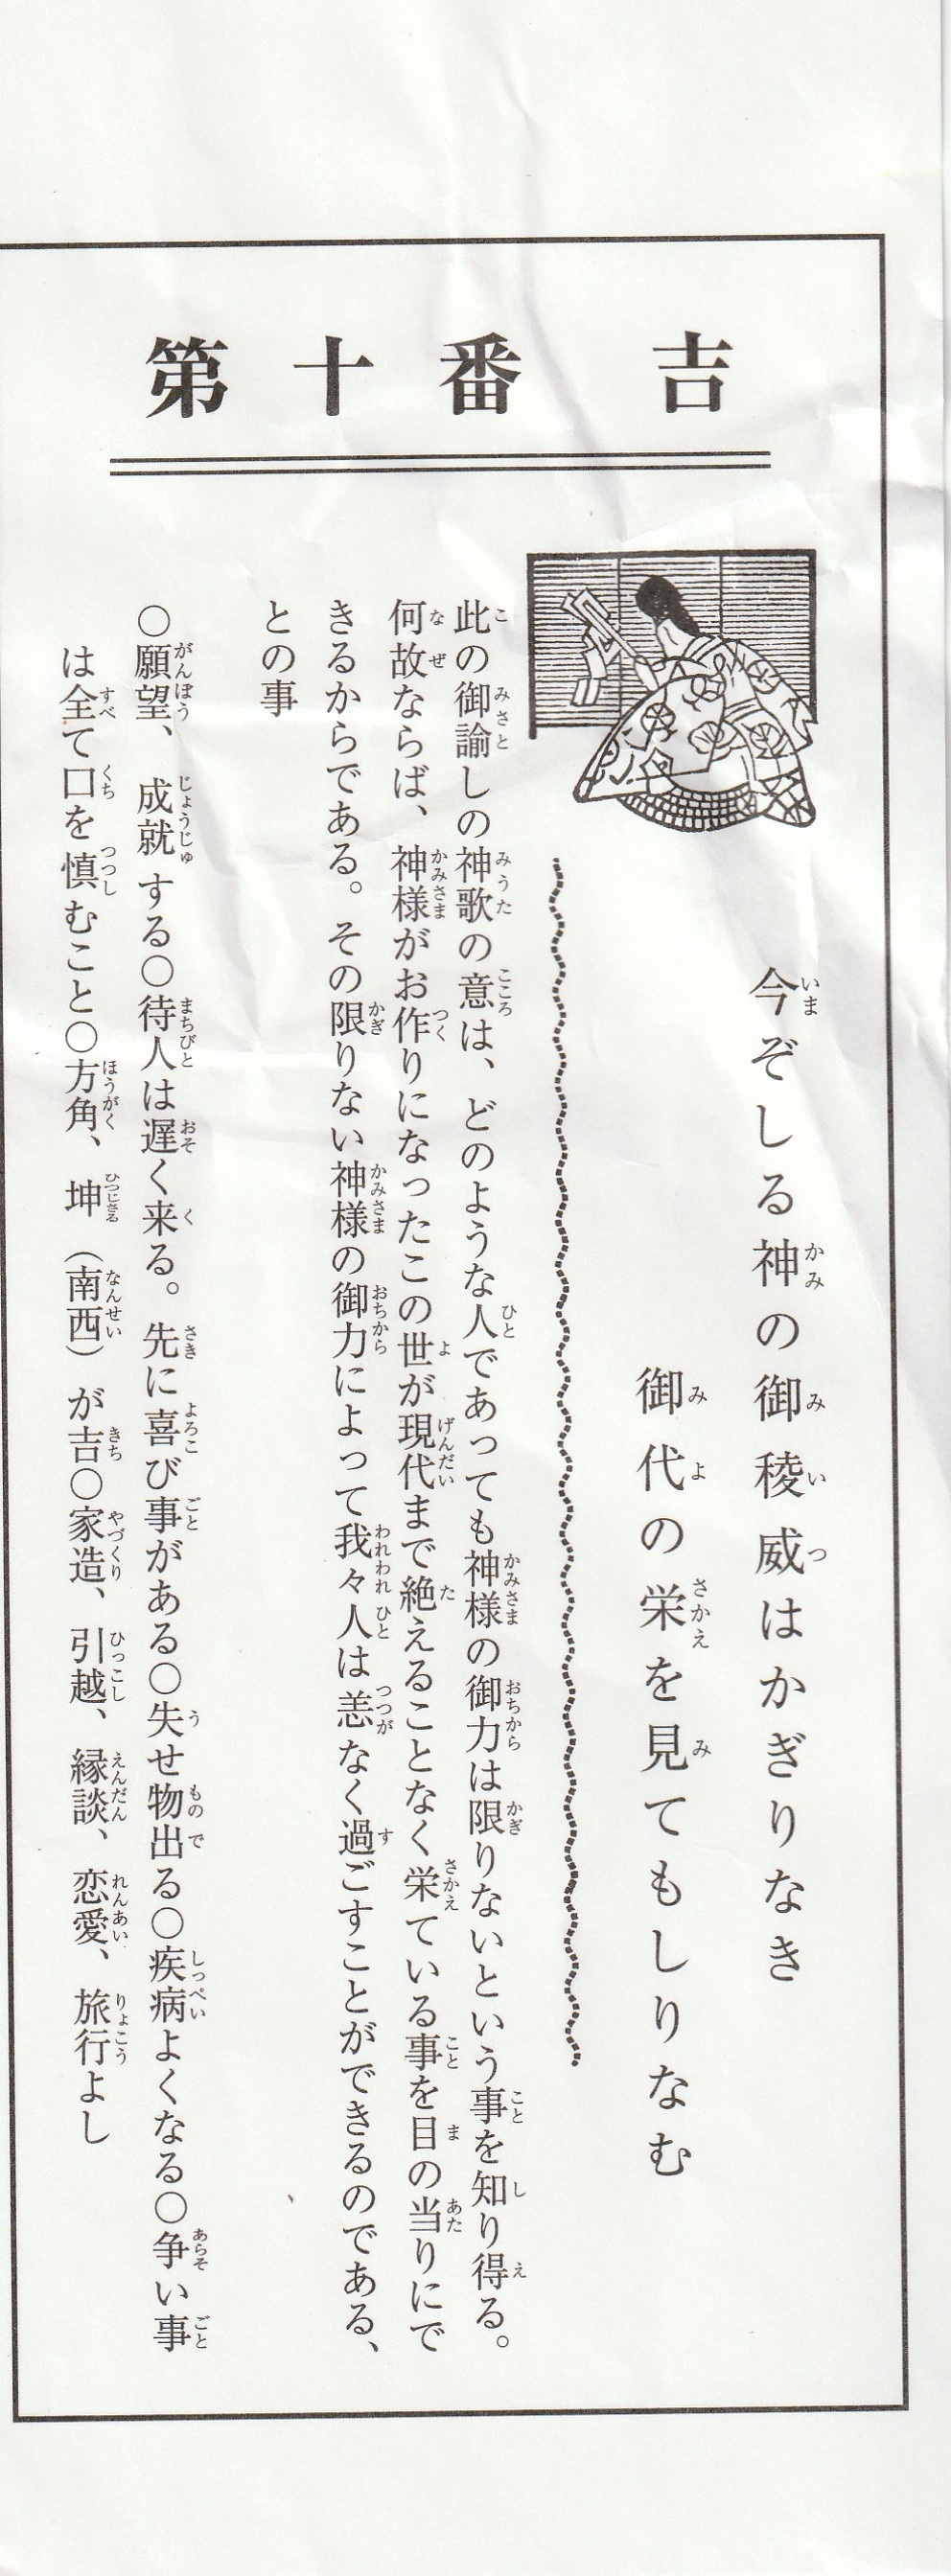 第十番 吉
今ぞしる神の御稜威はかぎりなき
御代の栄を見てもしりなむ
此の御諭しの神歌の意は、どのような人であっても神様の御力は限りないという事を知り得る。
何故ならば、神様がお作りになったこの世が現代まで絶えることなく栄ている事を目の当りにで
きるからである。その限りない神様の御力によって我々人は恙なく過ごすことができるのである、
との事
○願望、成就する○待人は遅く来る。先に喜び事がある○失せ物出る○疾病よくなる○争い事
は全て口を慎むこと○方角、坤（南西）が吉○家造、引越、縁談、恋愛、旅行よし